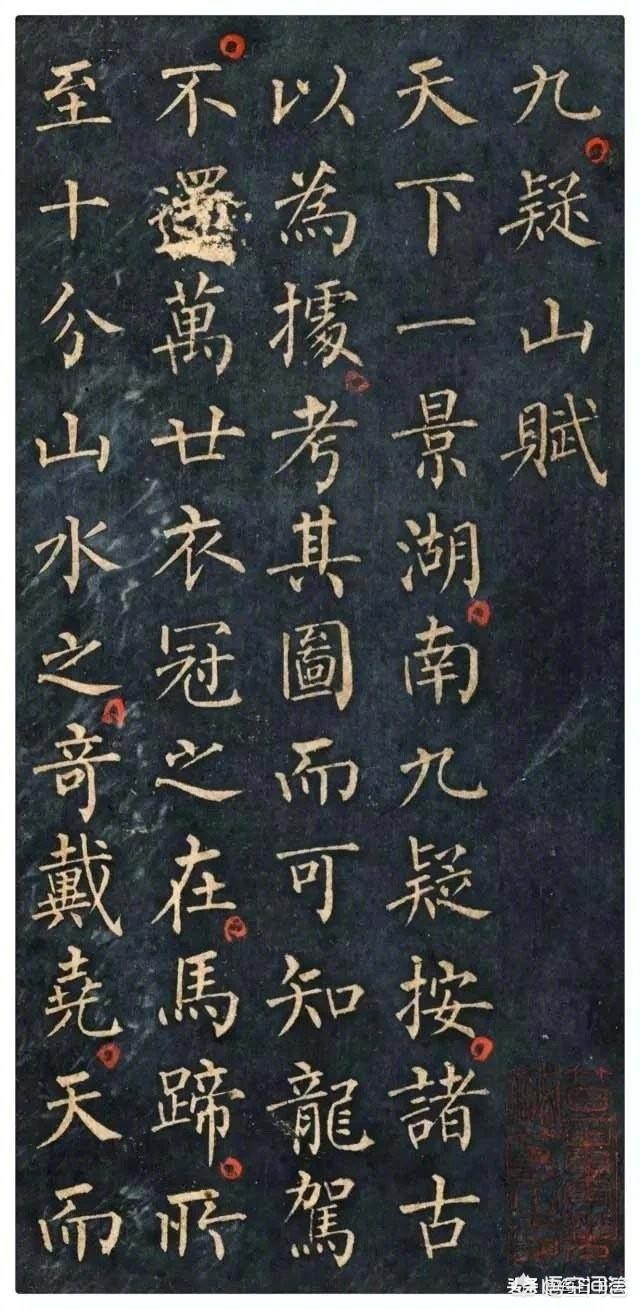 九疑山賦
天下一景湖南九疑按諸古
以為據考其圖而可知龍駕
不還萬廿衣冠之在馬蹄所
至十分山水之竒戴堯天而
悟空问答